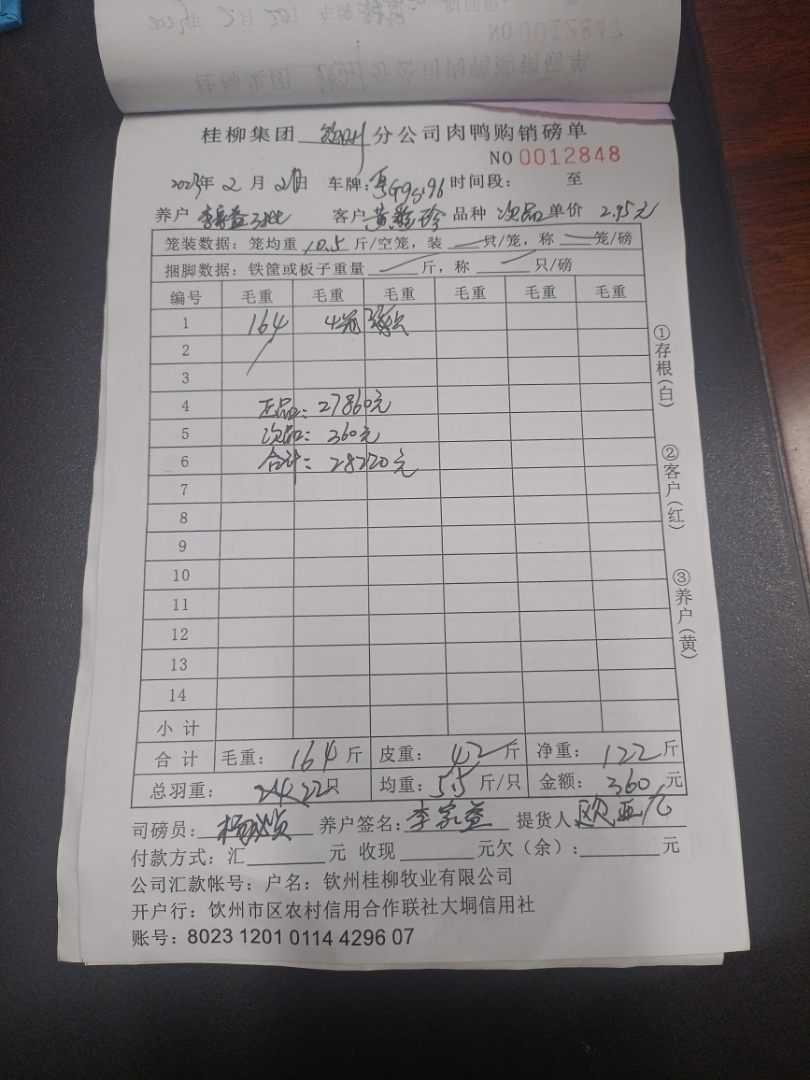 桂柳集团 钦州 分公司肉鸭购销磅单
NO 0012848
2023年 2 月 21日 车牌: 时间段: 至
养户 李家益 客户 黄 珍 品种 次品 单价 2.95元
笼装数据: 笼均重 10.5 斤/空笼, 装 只/笼, 称 笼/磅
捆脚数据: 铁筐或板子重量 斤, 称 只/磅
编号 毛重 毛重 毛重 毛重 毛重 毛重
1 164 4笼
2
3
4 正品: 27860元
5 次品: 360元
6 合计: 28220元
7
8
9
10
11
12
13
14
小 计
合 计 毛重: 164 斤 皮重: 42 斤 净重: 122 斤
总羽重: 22只 均重: 5.5 斤/只 金额: 360 元
司磅员: 养户签名: 李家益 提货人 欧亚
付款方式: 汇 元 收现 元欠(余): 元
公司汇款帐号: 户名: 钦州桂柳牧业有限公司
开户行: 饮州市区农村信用合作联社大垌信用社
账号: 8023 1201 0114 4296 07
①存根(白)
②客户(红)
③养户(黄)